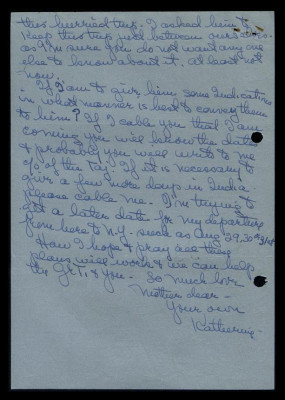 this hurried trip. I asked him to
keep this trip just between ourselves
as I'm sure you do not want any one
else to know about it, at least not
now.
If I am to give him some Indications
in what manner is best to convey them
to him? If I cable you that I am
coming you will know the date
& probably you will write to me
c/o of the Taj. If it is necessary to
give a few more days in India
please cable me. I'm trying to
get a later date for my departure
from here to N.Y. such as Aug 29, 30
How I hope & pray all these
plans will work & we can help
the & you. So much love
Mother dear –
Your own
Katherine –